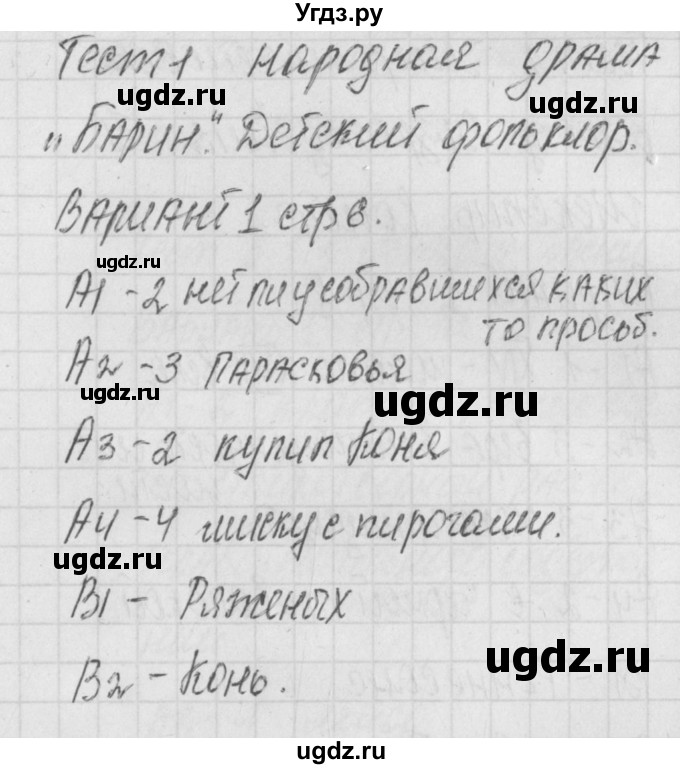 Угдз.ру
Тест 1 народная драма
ugdz.ru ugdz.ru
„Барин". Детский фольклор.
Вариант 1 стр 6.
ugdz.ru
А1 - 2 нет ли у собравшихся каких
то просьб.
А2 - 3 Парасковья
ugdz.ru ugdz.ru
А3 - 2 купил коня
А4 - 4 миску с пирогами.
ugdz.ru
В1 - Ряженых
ugdz.ru
В2 - Конь.
ugdz.ru